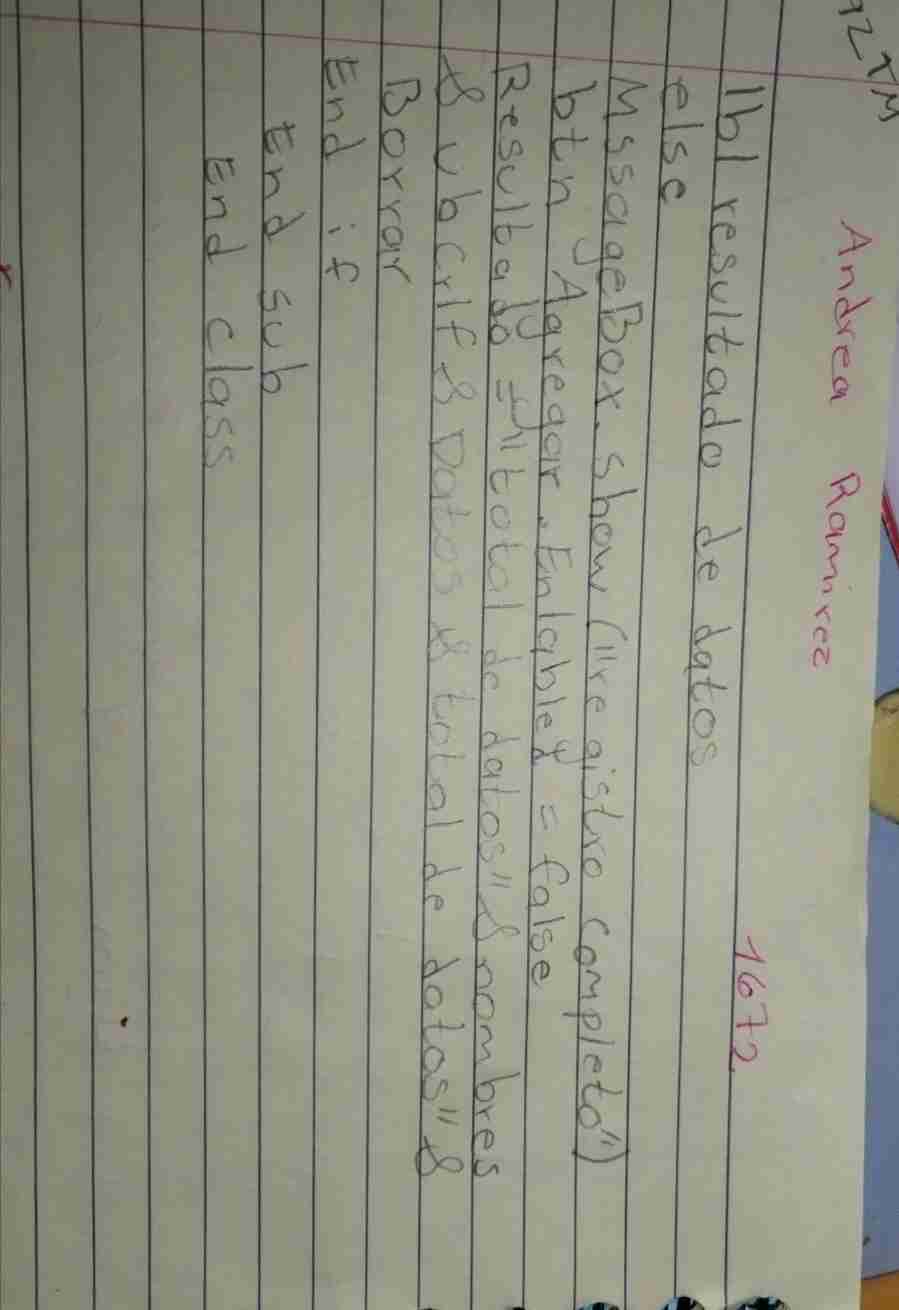 Andrea Ramirez
1672
lbl resultado de datos
else
MssageBox.show ("registro completo")
btn Agregar.Enlabled = false
Resultado = "total de datos" & nombres
& vbcrlf & Datos & total de datos" &
Borrar
End if
End sub
End class